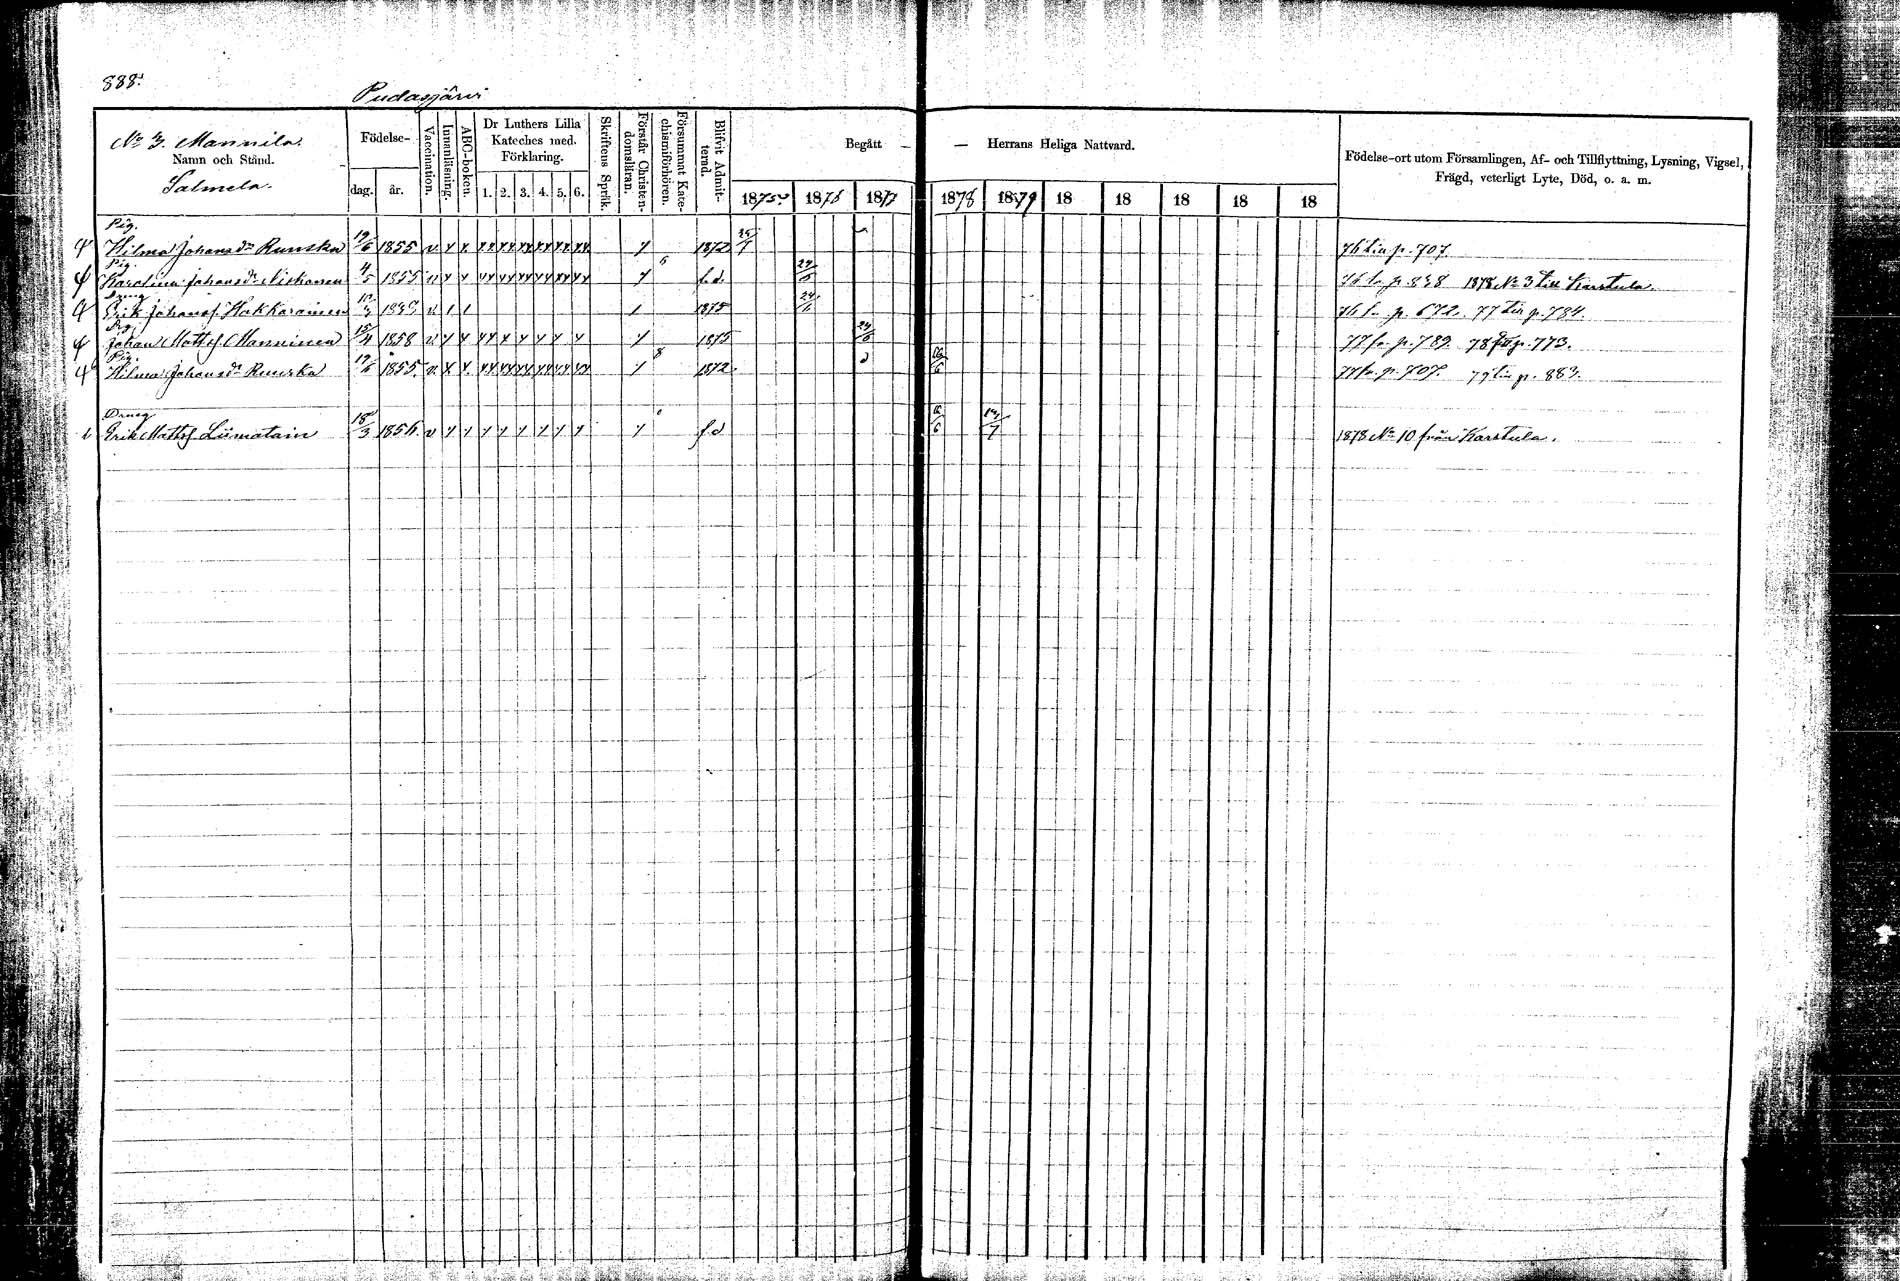 888.
Pudasjärvi
No 3. Mannila.
Namn och Stånd.
Salmela.
Födelse-
dag. år.
Vaccination.
Innanläsning.
ABC-boken.
Dr Luthers Lilla Kateches med. Förklaring.
1. 2. 3. 4. 5. 6.
Skriftens Språk.
Förstår Christendomsläran.
Försummat Katechismiförhören.
Blifvit Admitterad.
Begått — — Herrans Heliga Nattvard.
1875 1876 1877 1878 1879 18 18 18 18 18
Födelse-ort utom Församlingen, Af- och Tillflyttning, Lysning, Vigsel,
Frägd, veterligt Lyte, Död, o. a. m.
Pig.
Hilma Johansdr Runska 19/6 1855 v x x xx xx xx xx xx xx 1872 76 till p. 707.
Pig.
Karolina Johansdr 4/5 1855 f.d. 24/6 p. 838 1878 No 3 till Karstula.
Dräng
Erik Johanss. Hakkarainen 1875 24/6 76 fr. p. 672. 77 till p. 784.
Johan Matts. Manninen 15/4 1858 v 1875 24/6 77 fr. p. 789. 78 till p. 773.
Pig.
Hilma Johansdr Runska 19/6 1855. v. x x xx xx xx xx xx xx 1872 77 fr. p. 707. 79 till p. 883.
Dräng
Erik Matts. Liimatain 18/3 1856 v f d 1878 No 10 från Karstula.